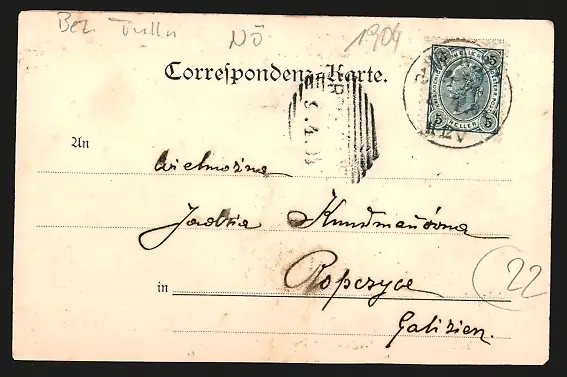 Bez. Tulln NÖ 1904
Correspondenz-Karte.
5 HELLER 5
An
Wielmożna
Jadzia
in Ropczyce
Galizien.
22